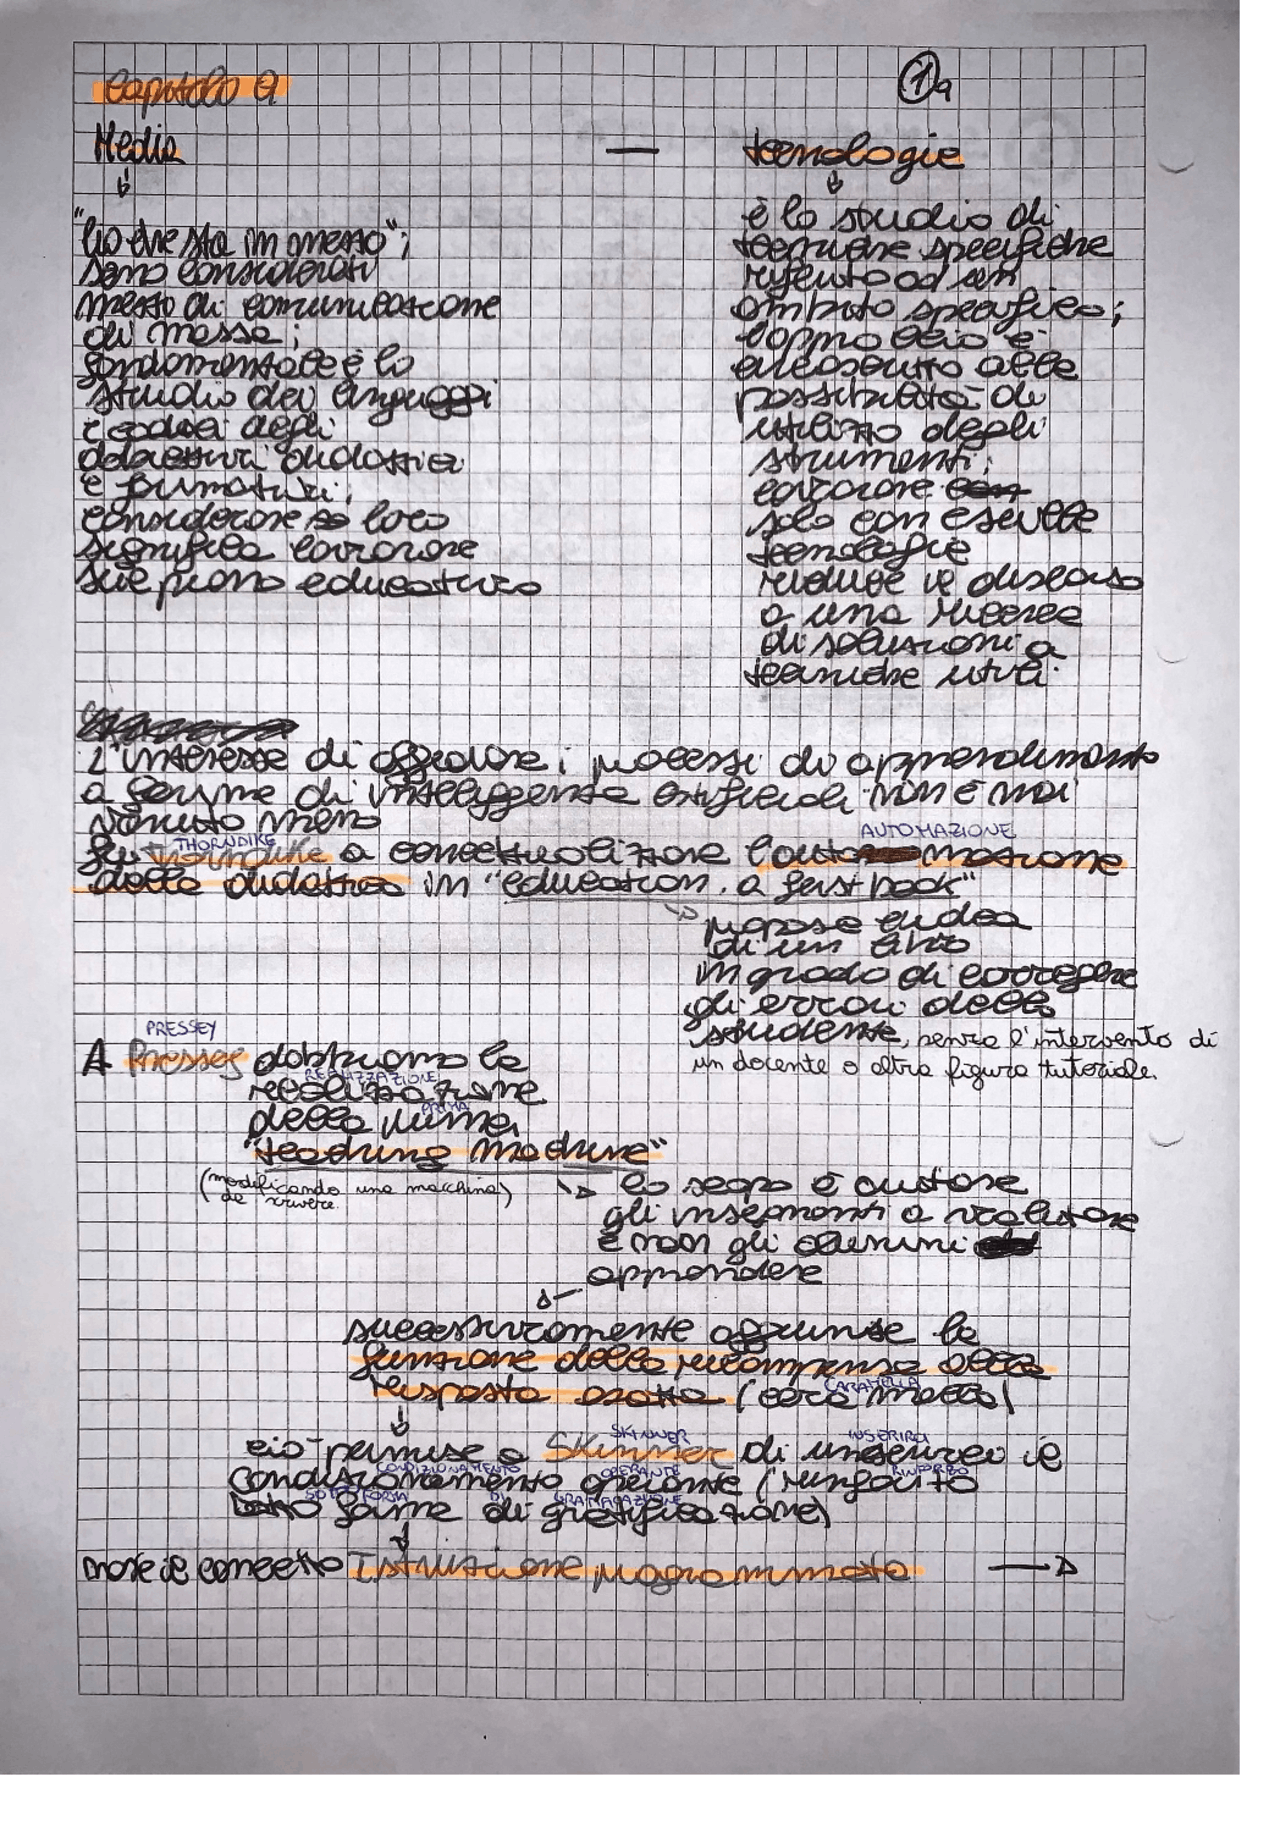 Capitolo 9
1a
Media — tecnologie
"Ciò che sta in mezzo";
sono considerati
mezzo di comunicazione
di massa;
fondamentale è lo
studio dei linguaggi
e codici degli
obiettivi didattici
e formativi;
considerare loro
significa lavorare
sul piano educativo
è lo studio di
tecniche specifiche
riferito ad un
ambito specifico;
l'approccio è
alle
possibilità di
utilizzo degli
strumenti;
lavorare
solo con esse o le
tecnologie
riduce il discorso
a una ricerca
di soluzioni a
tecniche utili
L'interesse di affidare i processi di apprendimento
a forme di intelligenza artificiali non è mai
venuto meno
THORNDIKE AUTOMAZIONE
Fu Thorndike a concettualizzare l'automazione
della didattica in "education. a first book"
propose l'idea
di un libro
in grado di correggere
gli errori dello
studente, senza l'intervento di
un docente o altra figura tutoriale.
PRESSEY
A Pressey dobbiamo la
REALIZZAZIONE
realizzazione
PRIMA
della prima
"teaching machine"
(modificando una macchina)
da scrivere
lo scopo è aiutare
gli insegnanti a valutare
e non gli alunni
apprendere
successivamente aggiunse la
funzione della ricompensa alla
CARAMELLA
risposta esatta (caramella)
SKINNER INSERIRE
ciò permise a Skinner di inserire il
CONDIZIONAMENTO OPERANTE RINFORZO
condizionamento operante (rinforzo
SOTTO FORMA DI GRATIFICAZIONE
forma di gratificazione)
nasce il concetto Istruzione programmata